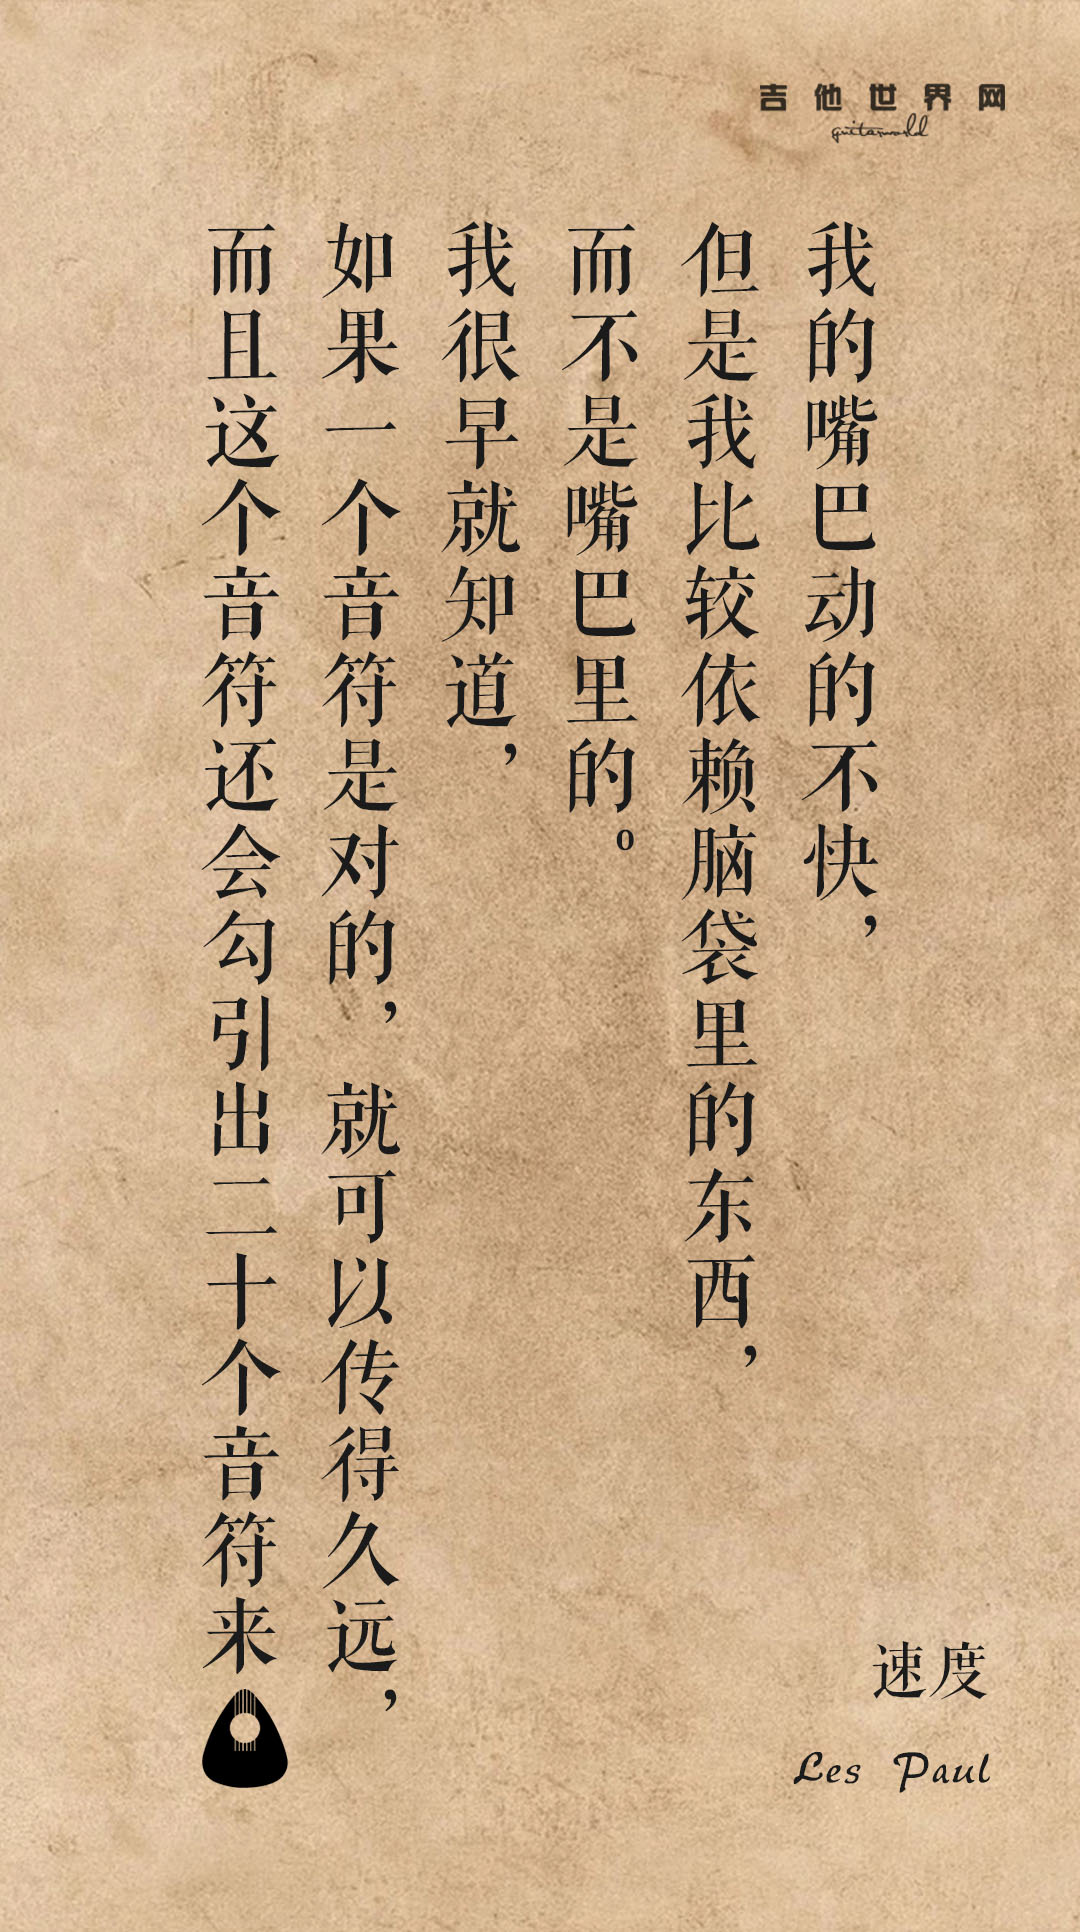 吉他世界网
guitarworld
我的嘴巴动的不快，
但是我比较依赖脑袋里的东西，
而不是嘴巴里的。
我很早就知道，
如果一个音符是对的，就可以传得久远，
而且这个音符还会勾引出二十个音符来
速度
Les Paul